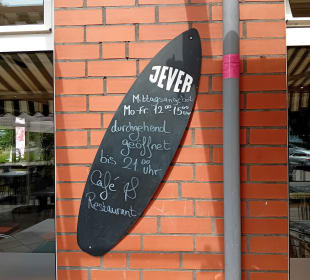 JEVER
Mittagsangebot
Mo-Fr. 12⁰⁰ 15⁰⁰ uhr
durchgehend
geöffnet
bis 21⁰⁰
uhr
Café
Restaurant